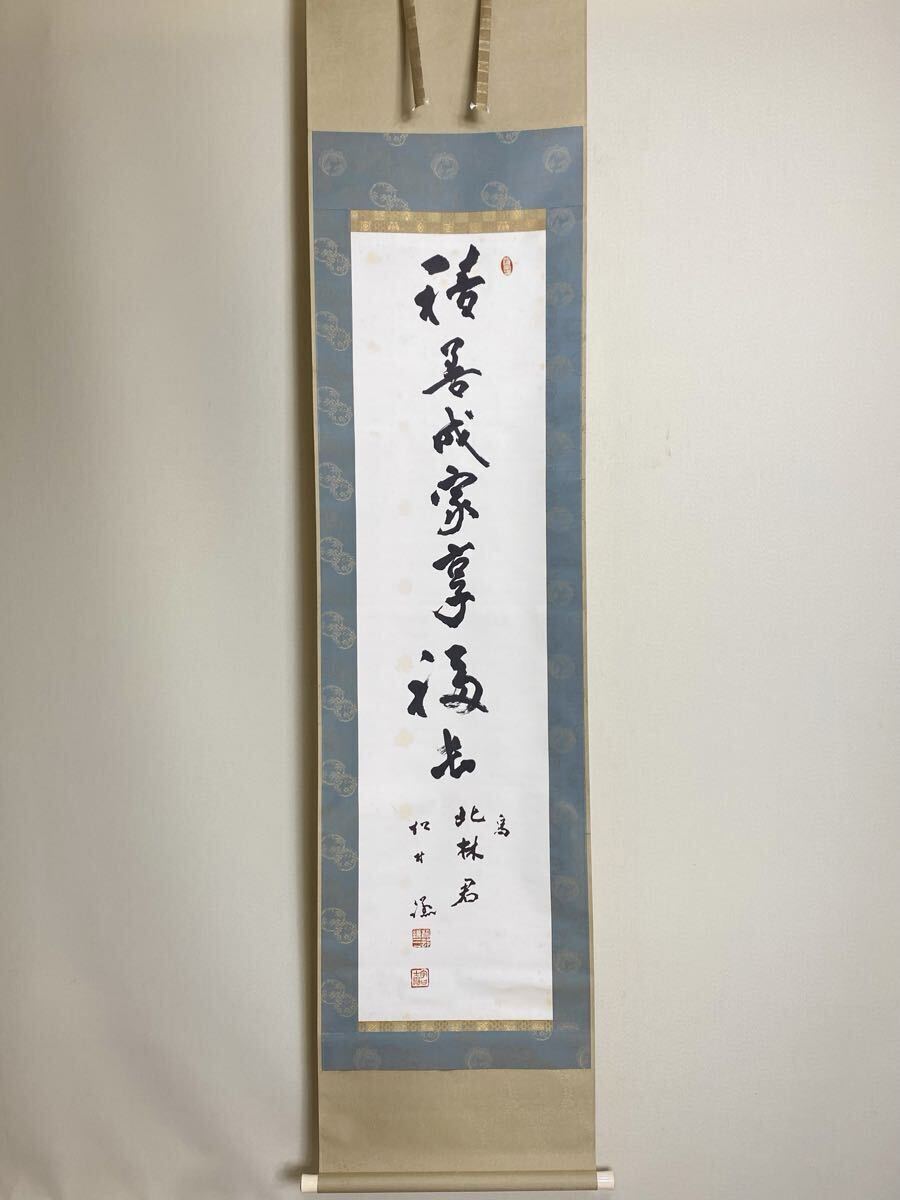 積善成家享福長
為
北林君
松村謙